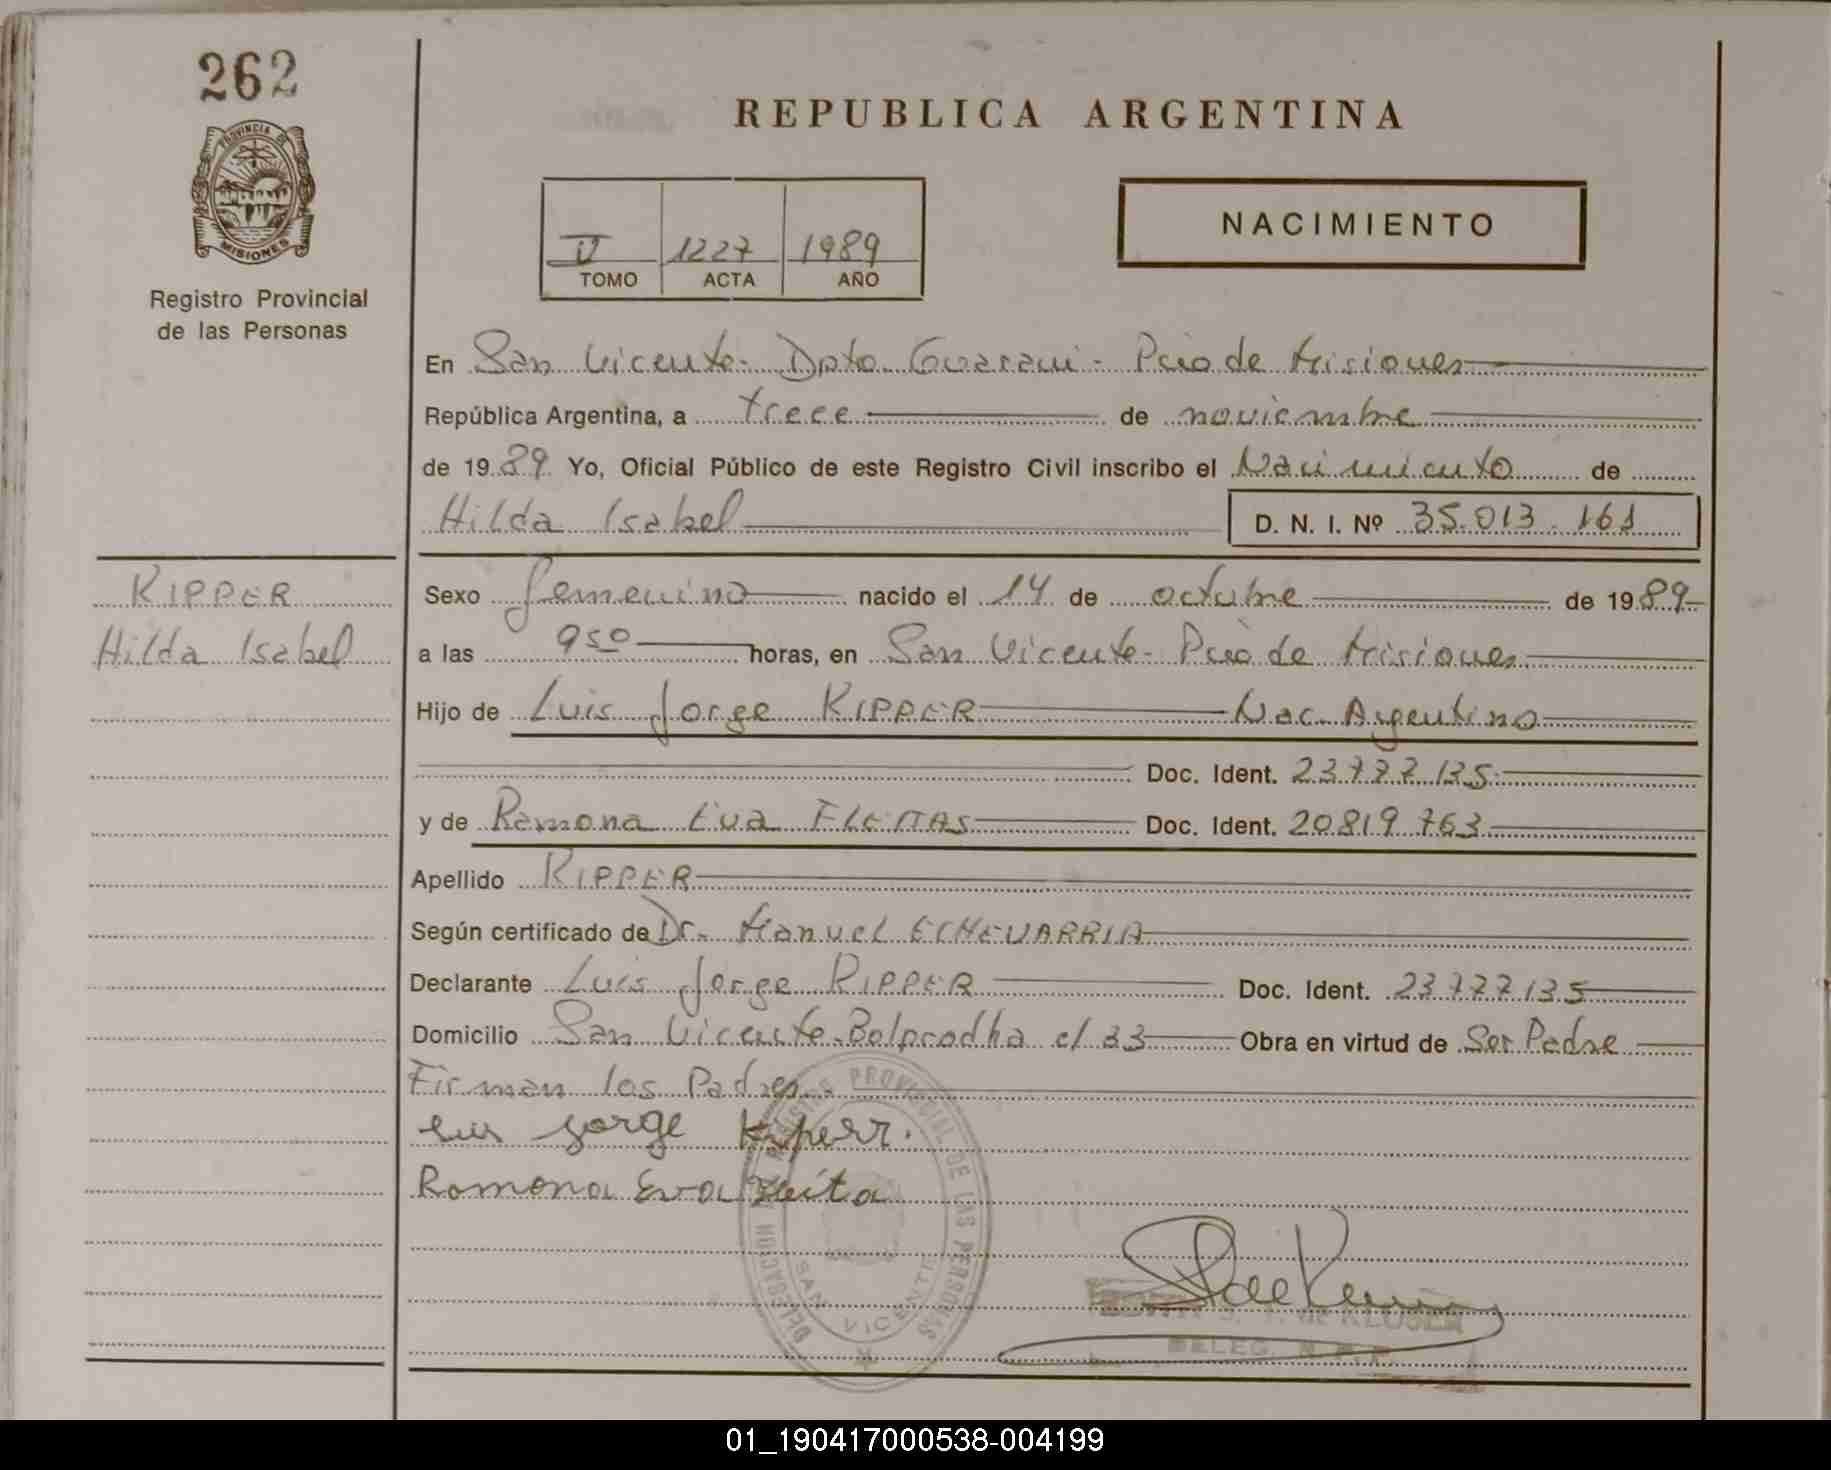 262
PROVINCIA DE
MISIONES
Registro Provincial
de las Personas
REPUBLICA ARGENTINA
V 1227 1989
TOMO ACTA AÑO
NACIMIENTO
En San Vicente - Dpto Guarani - Pcia de Misiones
República Argentina, a trece de noviembre
de 1989 Yo, Oficial Público de este Registro Civil inscribo el Nacimiento de
Hilda Isabel D. N. I. Nº 35.013.161
KIPPER
Hilda Isabel
Sexo femenino nacido el 14 de octubre de 1989
a las 9 50 horas, en San Vicente - Pcia de Misiones
Hijo de Luis Jorge KIPPER Nac. Argentino
Doc. Ident. 23777135
y de Ramona Eva FLEITAS Doc. Ident. 20819763
Apellido KIPPER
Según certificado de Dr. Manuel ECHEVARRIA
Declarante Luis Jorge KIPPER Doc. Ident. 23777135
Domicilio San Vicente c/ 33 Obra en virtud de Ser Padre
Firman los Padres.
Luis Jorge Kiperr.
Ramona Eva Fleita
DELEGACION REGISTRO PROVINCIAL DE LAS PERSONAS
SAN VICENTE
S. T. de KLUSER
DELEG. R.P.P.
01_190417000538-004199